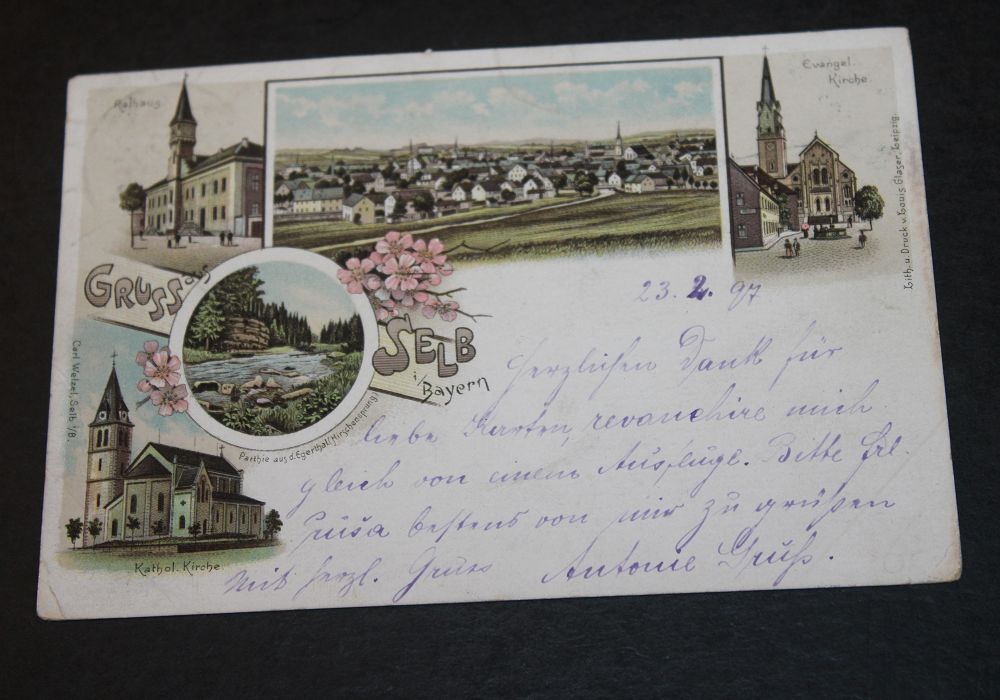 Rathaus.
Evangel.
Kirche.
Lith. u. Druck v. Louis Glaser, Leipzig.
GRUSS aus
SELB
i/Bayern
Carl Wetzel, Selb i/B.
Parthie aus d. Egerthal (Hirschensprung)
Kathol. Kirche.
23. 2. 97
Herzlichen Dank für
liebe Karten, revanchire mich
gleich von einem Ausfluge. Bitte Frl.
bestens von mir zu grüßen
Mit herzl. Gruss Antonie Gruß.